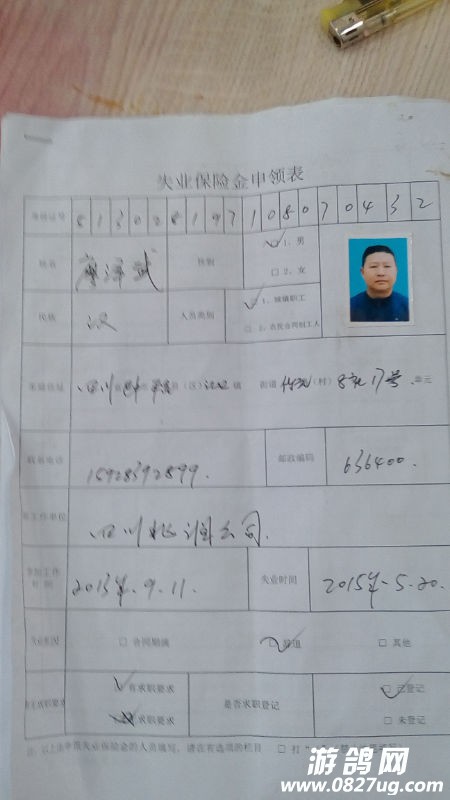 失业保险金申领表
身份证号 5 1 3 0 2 8 1 9 7 1 0 8 0 7 0 4 3 2
姓名 廖泽武 性别 1、男
2、女
民族 汉 人员类别 1、城镇职工
2、农民合同制工人
家庭住址 四川 (区) 镇 街道 (村) 17号 单元
联系电话 15928392899. 邮政编码 636400.
工作单位 四川 公司.
参加工作时间 2013年.9.11. 失业时间 2015年.5.20.
失业原因 合同期满 辞退 其他
求职要求 有求职要求 是否求职登记 已登记
求职要求 未登记
注：以上由申领失业保险金的人员填写，请在有选项的栏目 打
游鸽网
www.0827ug.com